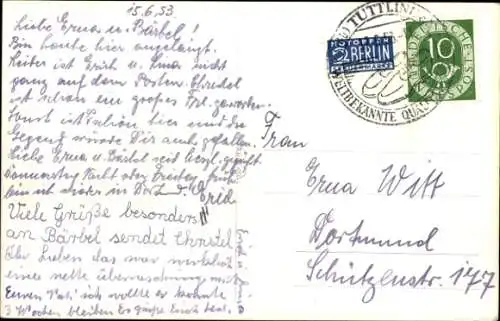 15.6.53
Liebe Erna u. Bärbel!
Bin heute hier angelangt.
Leider ist Erich u. Erna nicht
ganz auf dem Posten. Christel
ist schon ein großes Frl. geworden.
Sonst ist schön hier und die
Gegend würde Dir auch gefallen.
Liebe Erna u. Bärbel seid herzl. gegrüßt
Donnerstag Nacht oder Freitag früh
bin ich wieder in Dortmund.
Viele Grüße besonders
an Bärbel sendet Christel
Ihr Lieben das war wirklich
eine nette Überraschung mit
Eurem ich wollte er könnte
3 Wochen bleiben
TUTTLIN
WELTBEKANNTE
NOTOPFER
2 BERLIN
STEUERMARKE
DEUTSCHE POST
10
Frau
Erna Witt
Dortmund
Schützenstr. 177